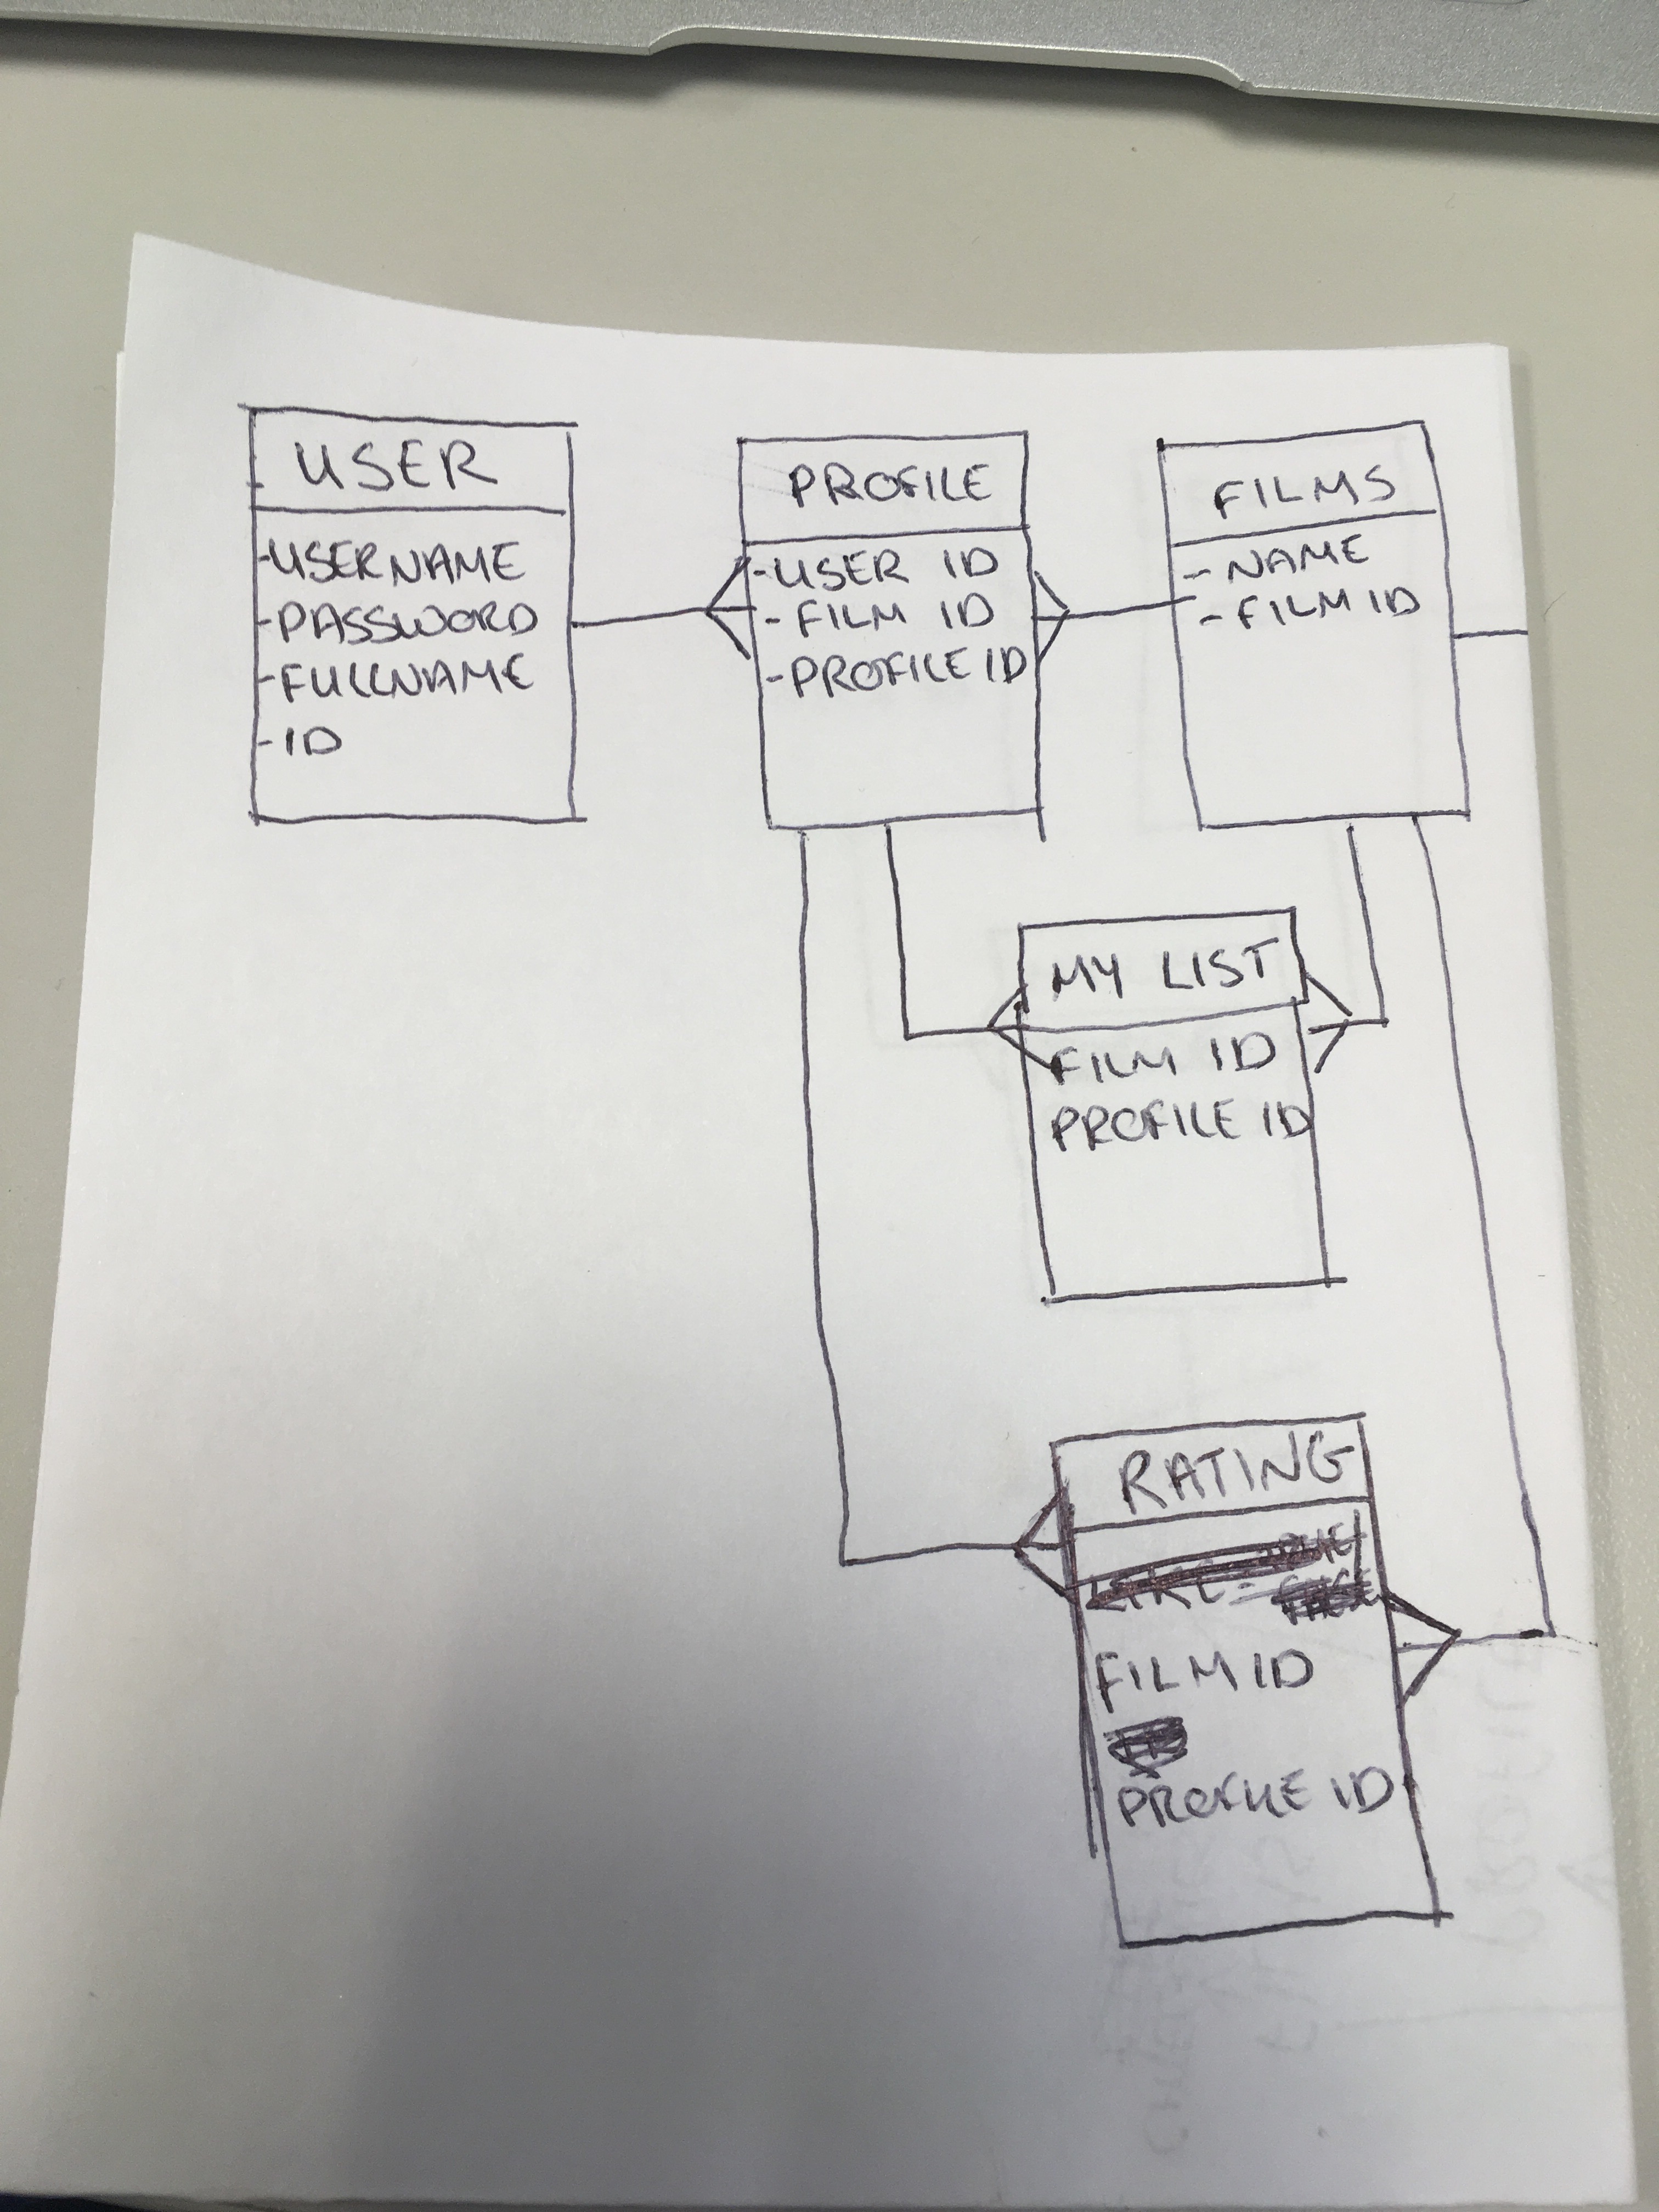 USER
-USERNAME
-PASSWORD
-FULLNAME
-ID
PROFILE
-USER ID
-FILM ID
-PROFILE ID
FILMS
-NAME
-FILM ID
MY LIST
FILM ID
PROFILE ID
RATING
FILM ID
PROFILE ID